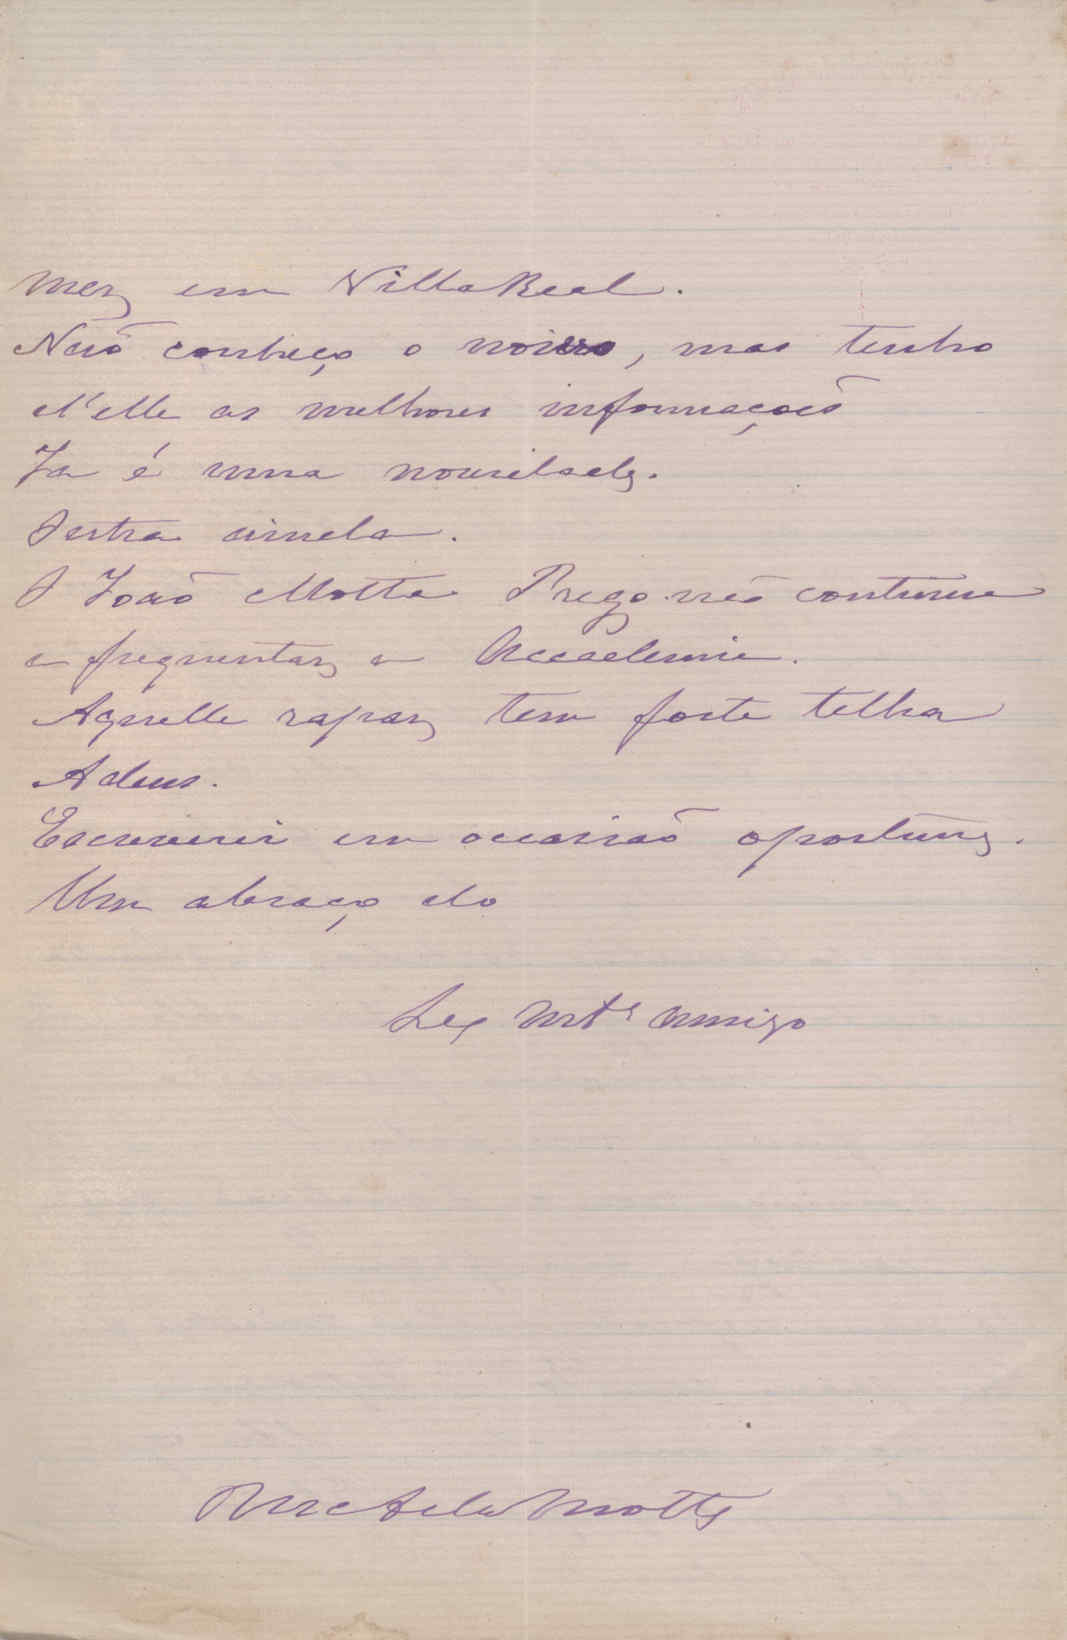 mez em Villa Real.
Não conheço o noivo, mas tenho
d'elle as melhores informações
Ja é uma novidade.
Outra ainda.
O João Motta Prego não continua
a frequentar a Accademia.
Aquelle rapaz tem forte telha
Adeus.
Escreverei em occasião oportuna.
Um abraço do
Seu Mtº amigo
Motta